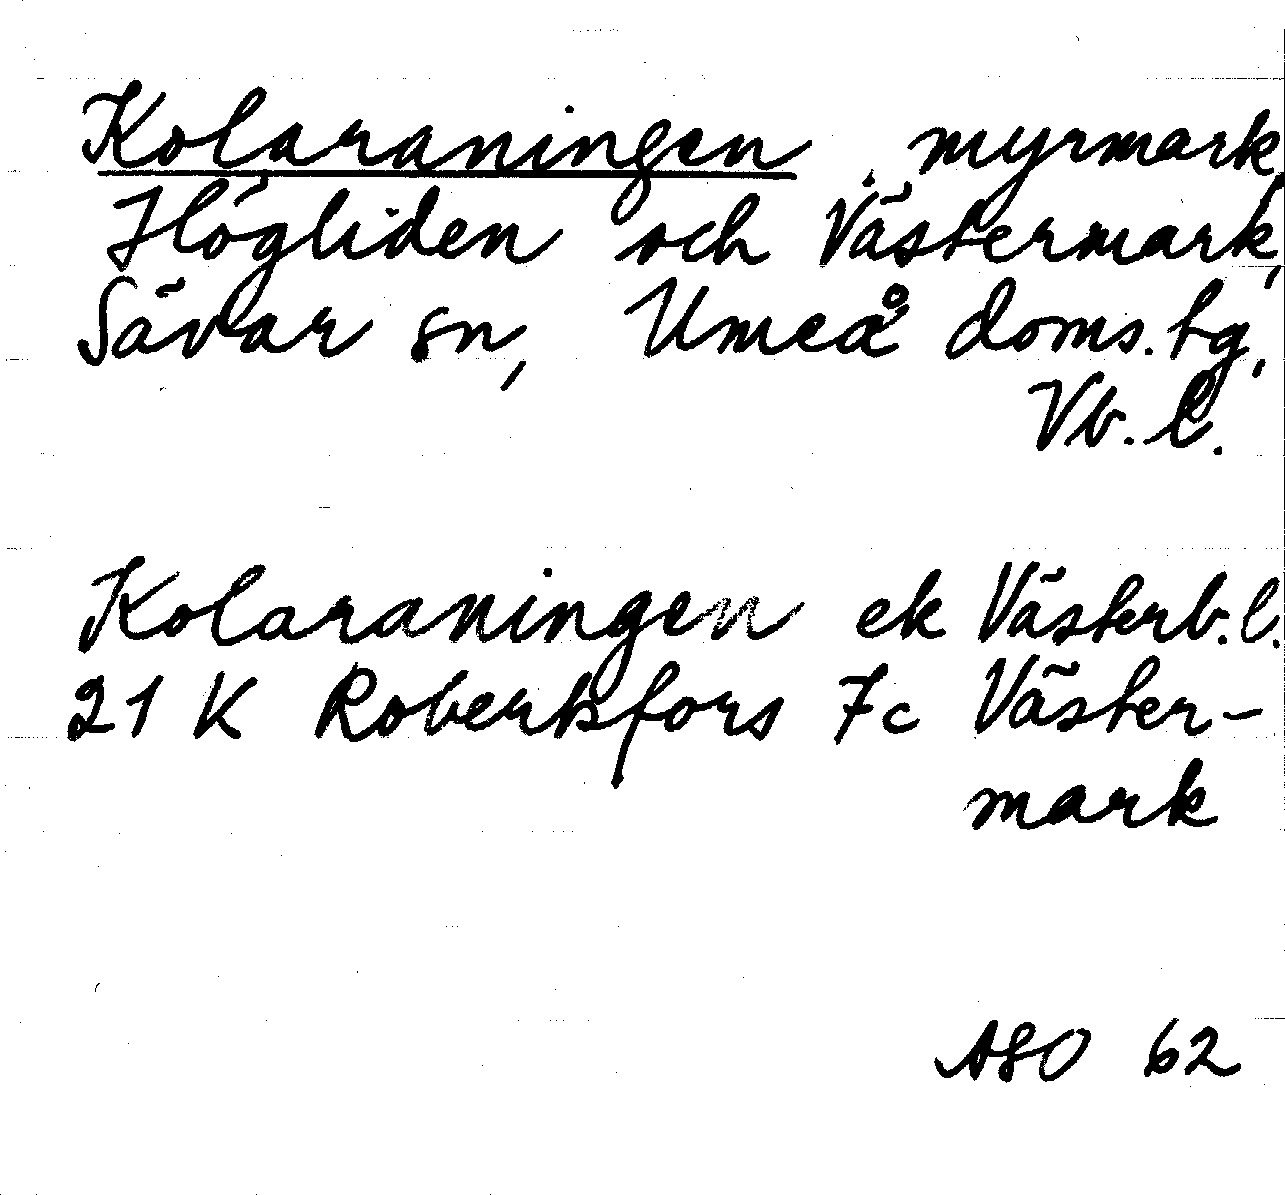 Kolaraningen, myrmark,
Högliden och Västermark,
Sävar sn, Umeå doms.tg,
Vb. l.
Kolaraningen ek Västerb.l.
21 K Robertsfors 7c Väster-
mark
ASO 62